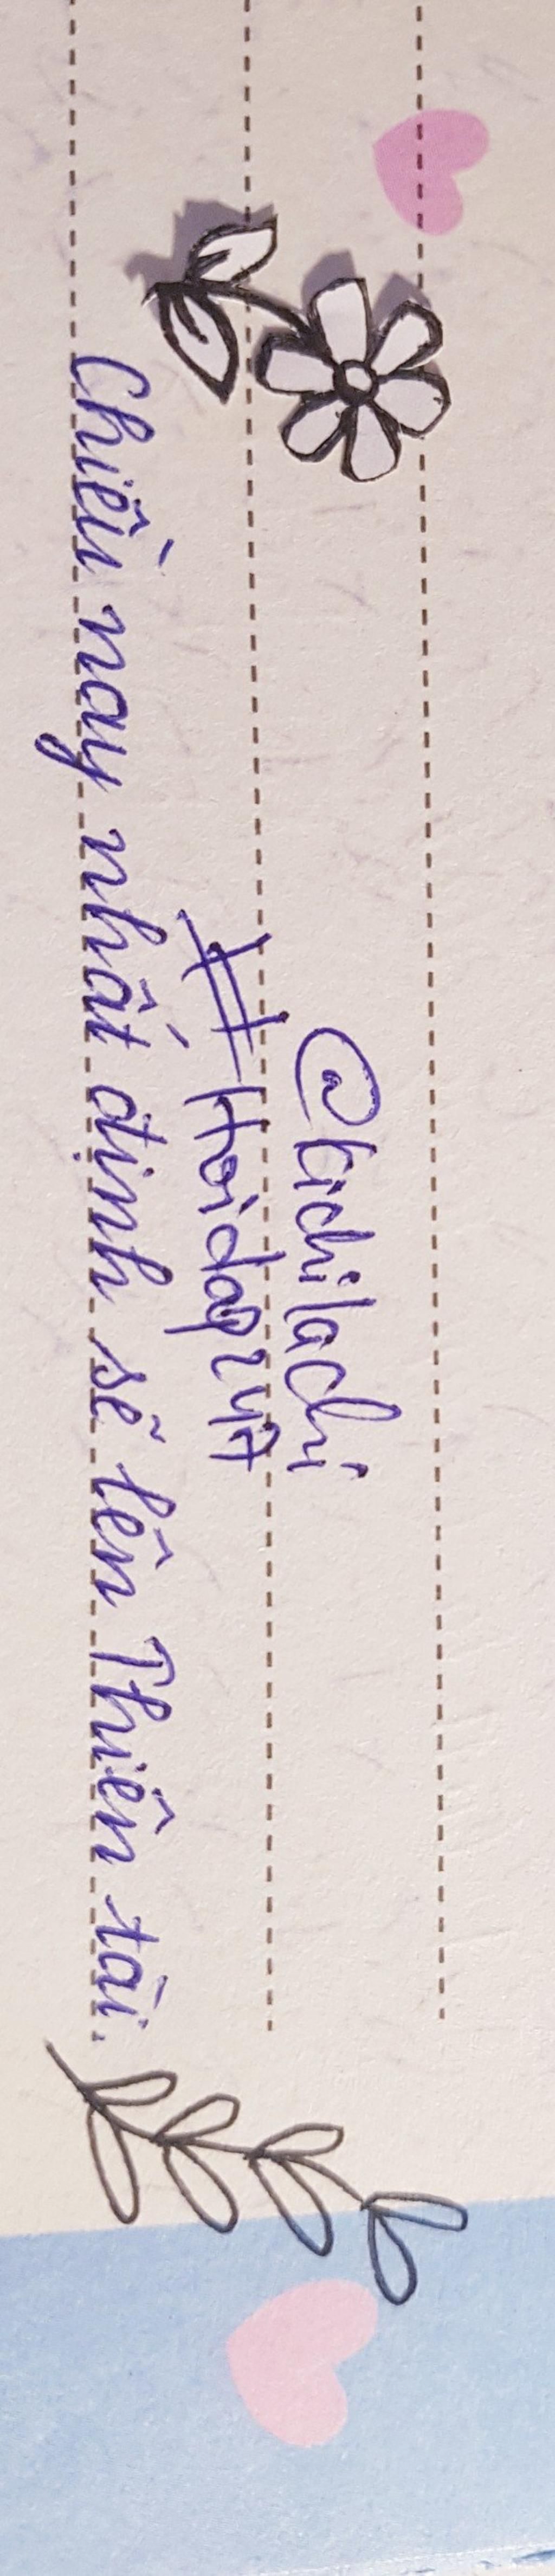 @kichilachi
#Hoidap247
Chiều nay nhất định sẽ lên Thiên tài.